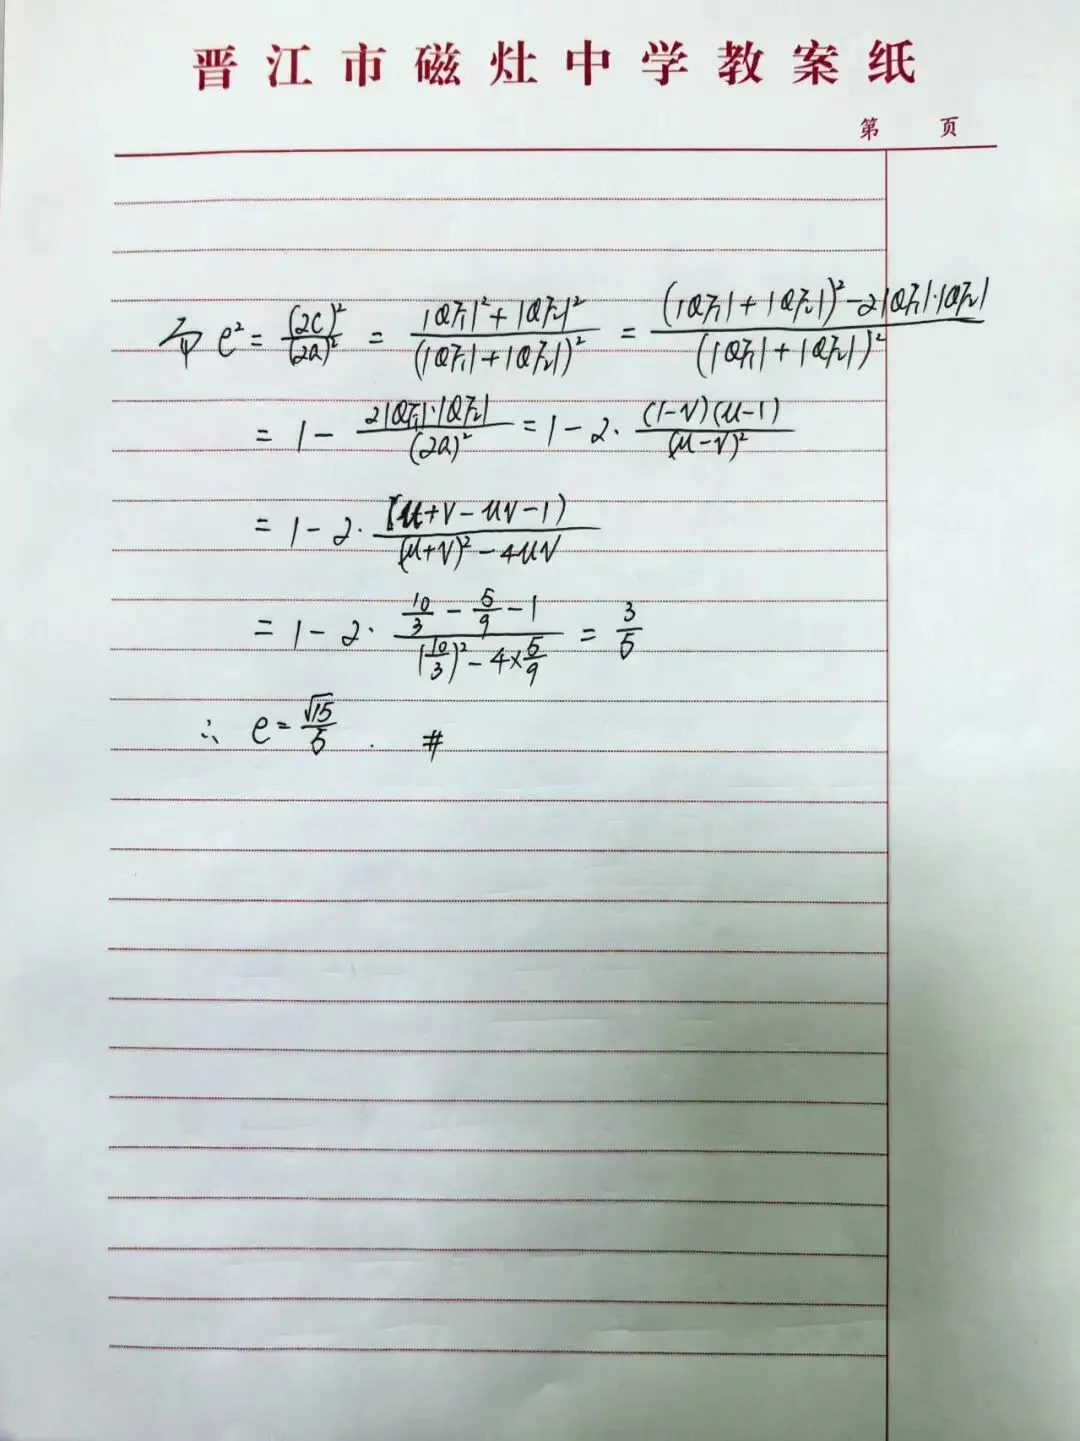 晋江市磁灶中学教案纸
第 页
而 e² = (2c)²/(2a)² = (|QF₁|²+|QF₂|²)/(|QF₁|+|QF₂|)² = ((|QF₁|+|QF₂|)²-2|QF₁|·|QF₂|)/(|QF₁|+|QF₂|)²
= 1 - 2|QF₁|·|QF₂|/(2a)² = 1-2·(1-v)(u-1)/(u-v)²
= 1-2·(u+v-uv-1)/((u+v)²-4uv)
= 1-2·(10/3 - 5/9 - 1)/((10/3)²-4×5/9) = 3/5
∴ e = √15/5 . #